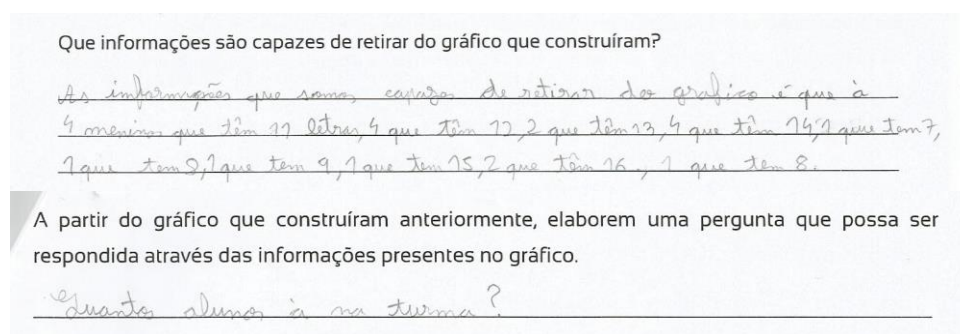 Que informações são capazes de retirar do gráfico que construíram?
As informações que somos capazes de retirar do grafico é que à
4 meninos que têm 11 letras, 4 que têm 12, 2 que têm 13, 4 que têm 14, 1 que tem 7,
1 que tem 9, 1 que tem 15, 2 que têm 16, 1 que tem 8.
A partir do gráfico que construíram anteriormente, elaborem uma pergunta que possa ser
respondida através das informações presentes no gráfico.
Quantos alunos à na turma?